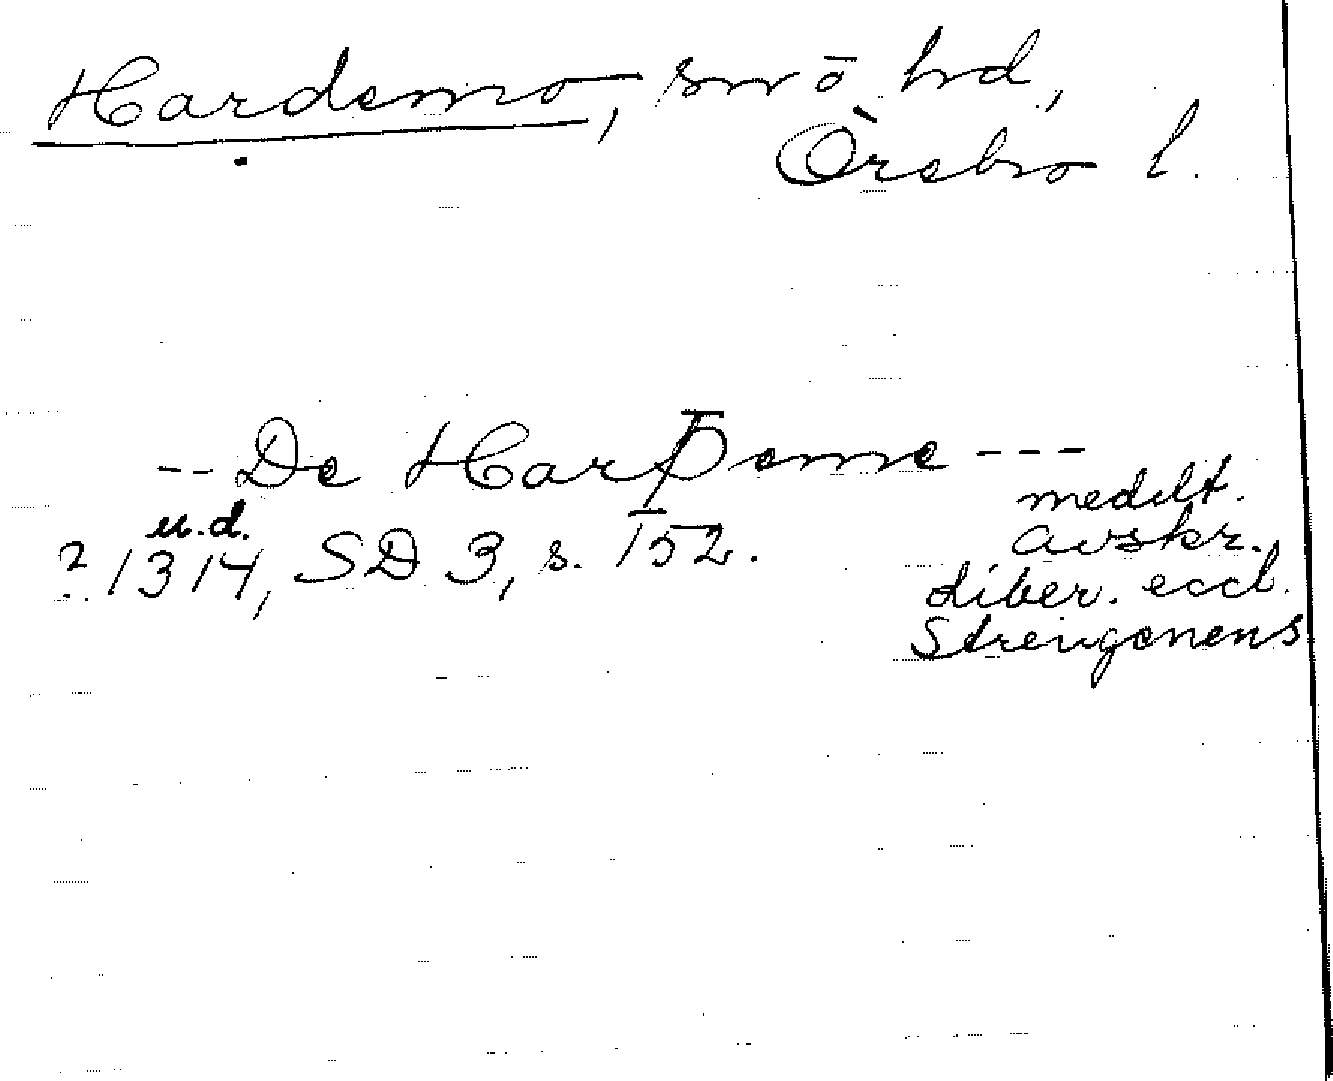 Hardemo, sn o hd,
Örebro l.
-- De Harþeme ---
medelt.
avskr.
u.d.
? 1314, SD 3, s. 152.
Liber. eccl.
Strengenens